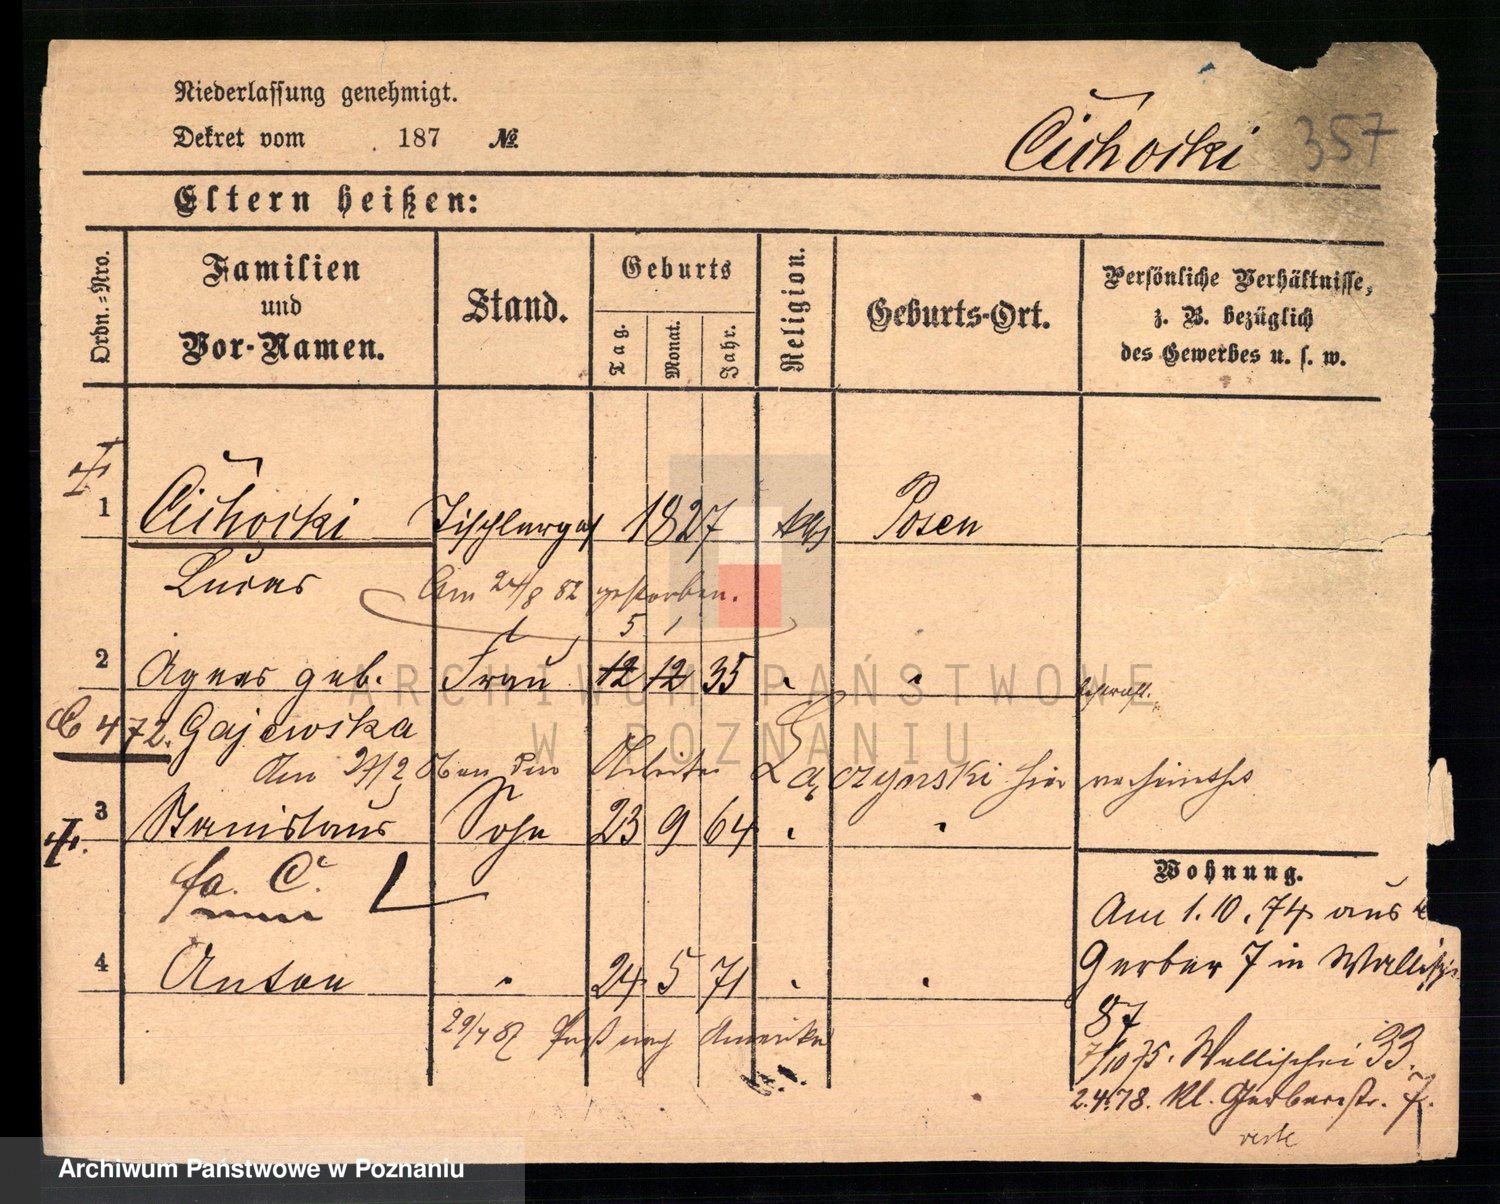 Niederlassung genehmigt.
Dekret vom 187 №
Cichocki 357
Eltern heißen:
Ordn.=Nro.
Familien
und
Vor-Namen.
Stand.
Geburts
Tag.
Monat.
Jahr.
Religion.
Geburts-Ort.
Persönliche Verhältnisse,
z. B. bezüglich
des Gewerbes u. s. w.
1 Cichocki Tischlerges 1827 Posen
Lucas Am 24/8 82 gestorben.
5 1
2 Agnes geb. Frau 12 12 35 "
C 472. Gajewska
Am den Arbeiter Łączynski hier
3 Stanislaus Sohn 23 9 64 " "
fa. C.
4 Anton " 24 5 71 " "
29/4 87 Paß nach Amerika
Wohnung.
Am 1.10.74 aus
Gerber 7 in Wallischei
87
7/10 75. Wallischei 33.
2.4.78. Kl. Gerberstr. 7.
ARCHIWUM PAŃSTWOWE
W POZNANIU
Archiwum Państwowe w Poznaniu